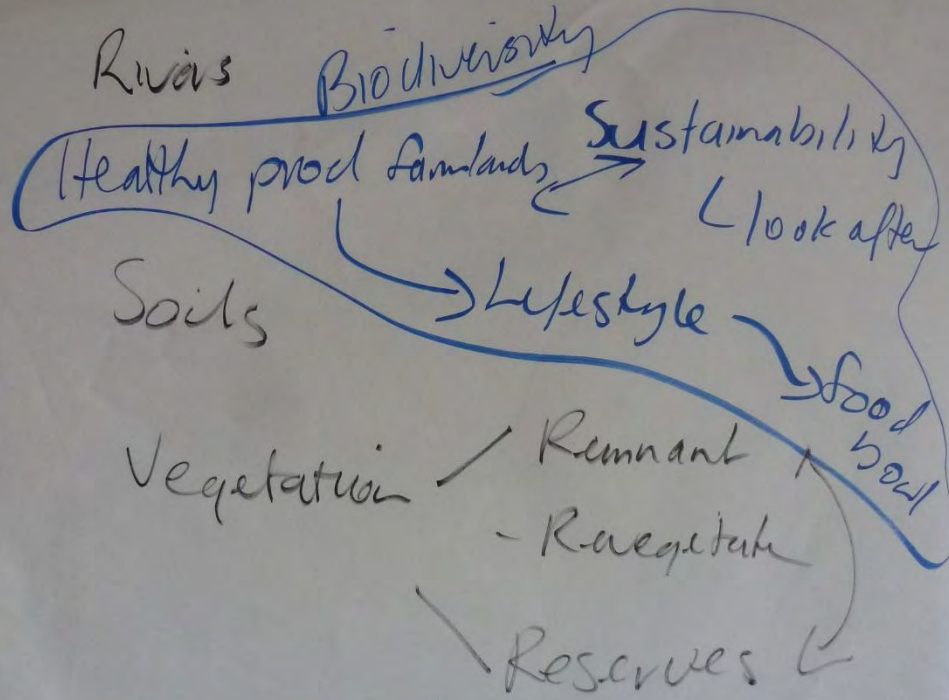 Rivers Biodiversity
Healthy prod farmlands Sustainability
look after
Soils
Lifestyle
food
bowl
Vegetation
Remnant
- Revegitate
Reserves